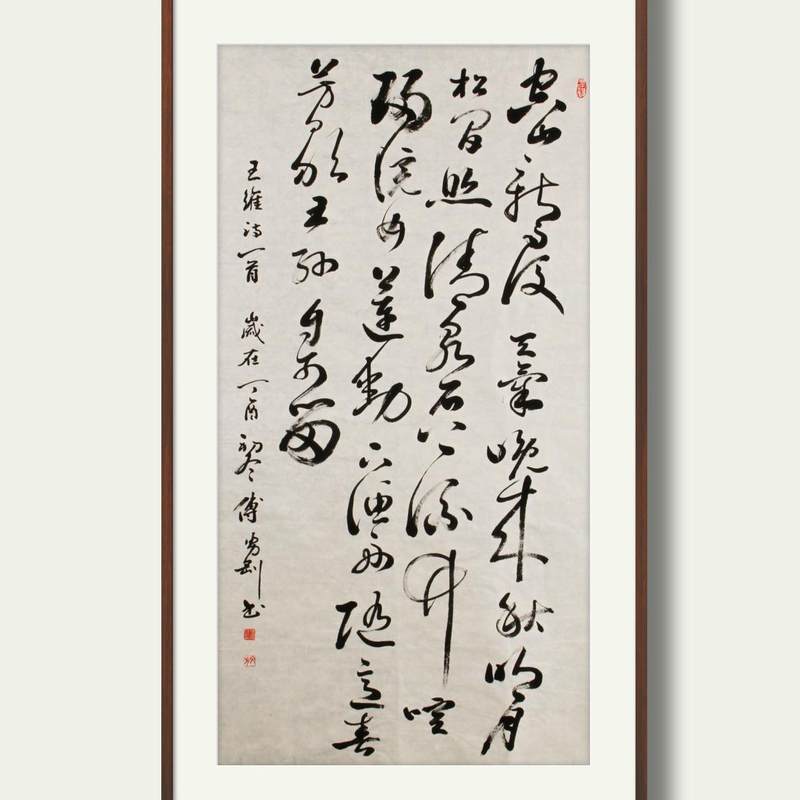 空山新雨後天氣晚來秋明月
松間照清泉石上流竹喧
歸浣女蓮動下漁舟隨意春
芳歇王孫自可留
王維詩一首 歲在丁酉初冬 傅書